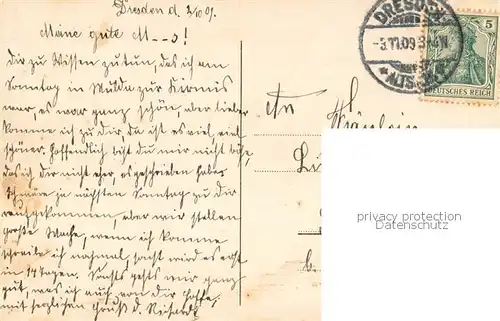 Dresden d. 2/10 09.
Meine gute M---s!
Dir zu Wissen zutun, das ich am
Sonntag in Mulda zur Kirmis
war, es war ganz schön, aber lieber
komme ich zu dir, da ist es viel, viel
schöner. Hoffendlich bist du mir nicht böse,
das ich dir nicht eher, es geschrieben habe.
wäre je nächsten Sonntag zu dir
gekommen, aber wir stellen
große Wache, wenn ich komme
schreibe ich nochmal, sonst wird es erst
in 14 Tagen. Sonst gehts mir ganz
gut, was ich auch von dir hoffe,
mit herzlichen Gruß d. Richard
DRESDEN
-3.11.09 3-4N
*ALTST.
5
DEUTSCHES REICH
An
Fräulein
privacy protection
Datenschutz